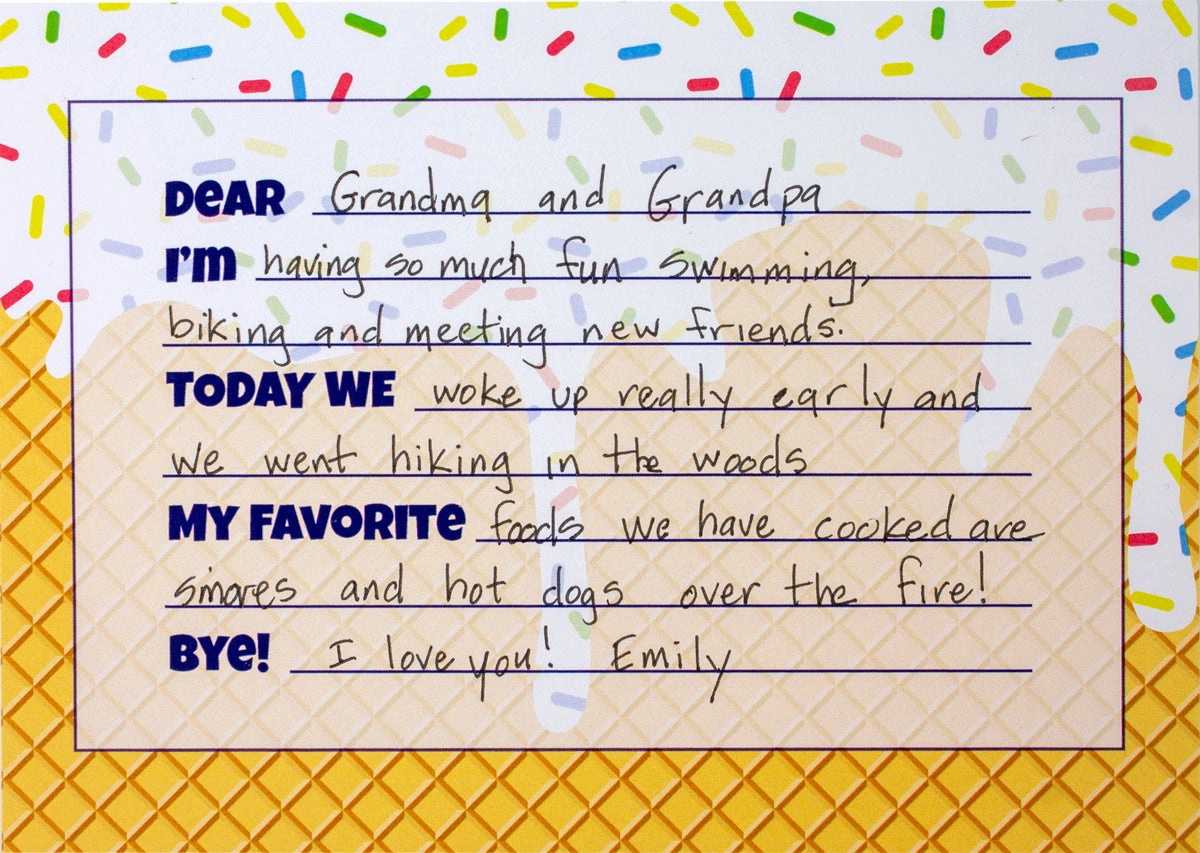 DeAR Grandma and Grandpa
I'm having so much fun swimming,
biking and meeting new friends.
TODAY WE woke up really early and
we went hiking in the woods
MY FAVORITe foods we have cooked are
s'mores and hot dogs over the fire!
BYe! I love you! Emily